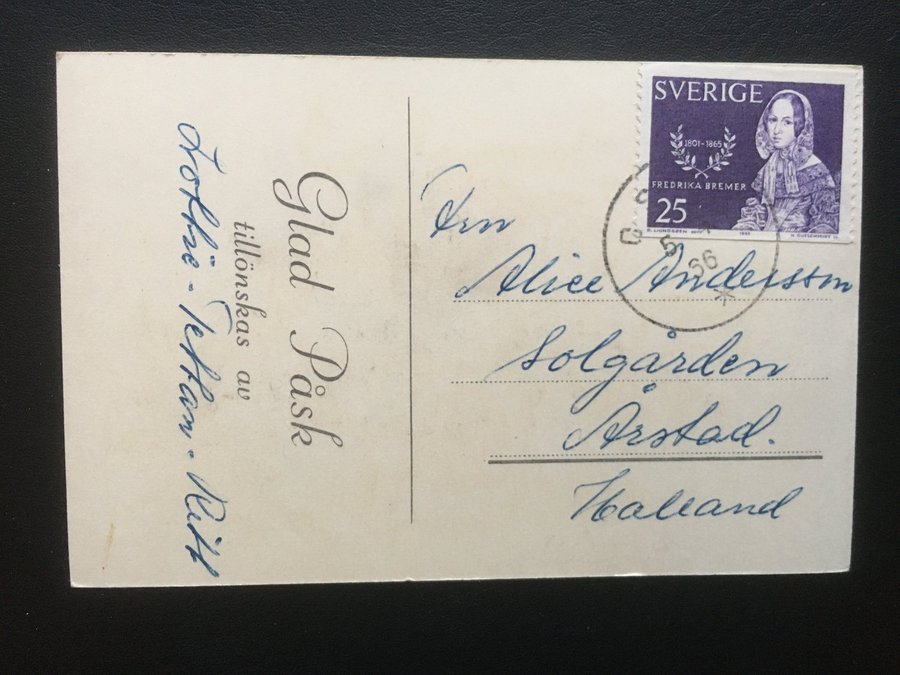 Glad Påsk
tillönskas av
Lottie - Tettan - Kitt
SVERIGE
1801-1865
FREDRIKA BREMER
25
5
66
Frn
Alice Andersson
Solgården
Årstad.
Halland